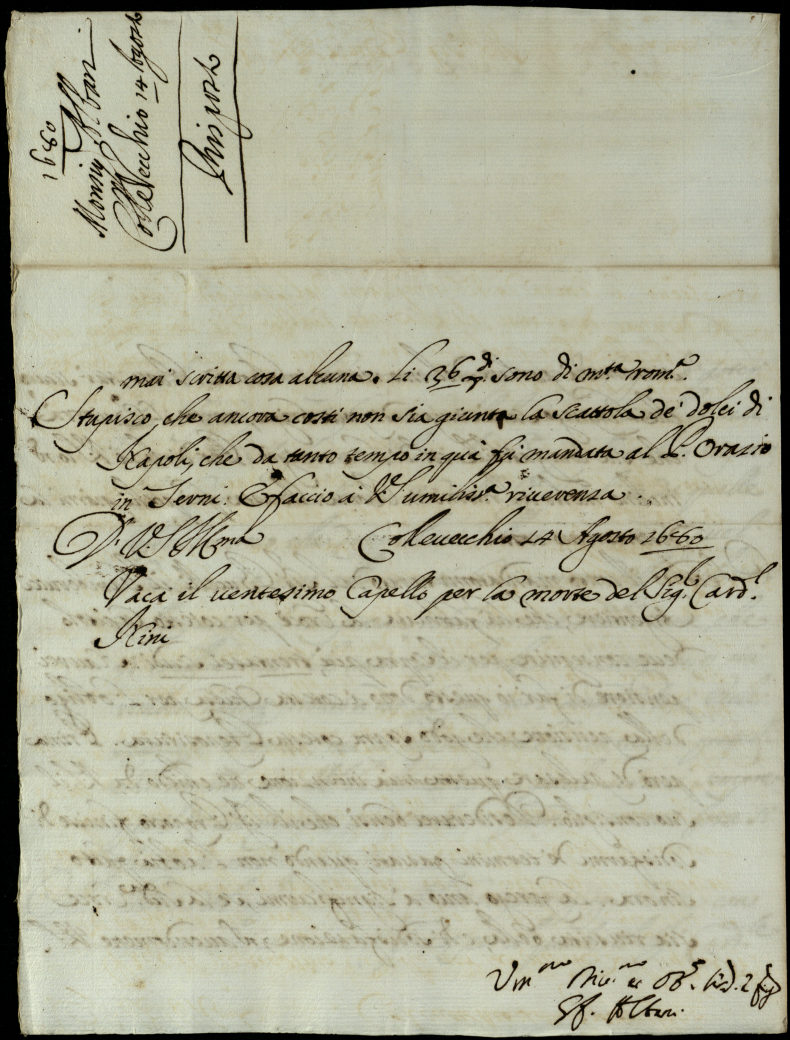 1680
Monsig.r Albani
Collevecchio 14 Agosto
Risposta
mai scritta cosa alcuna. Li 36 di sono di m.ta rom.e
Stupisco, che ancora costì non sia giunta la scattola de' dolci di
Napoli, che da tanto tempo in quà fù mandata al P. Orazio
in Terni. E faccio à V.S. umiliss.a riverenza.
D. V.S. Ill.ma Collevecchio 14 Agosto 1680
Vaca il ventesimo Capello per la morte del Sig.r Card.l
Nini
Um.mo Div.mo et Obl.
Gf. Albani